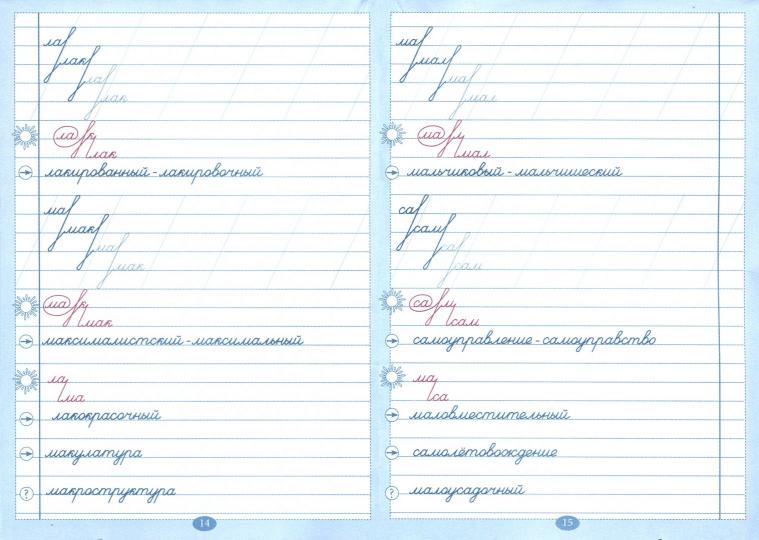 ла
лак
ла
лак
ла к
лак
лакированный - лакировочный
ма
мак
ма
мак
ма к
мак
максималистский - максимальный
ла
ма
лакокрасочный
макулатура
? макроструктура
14
ма
мал
ма
мал
ма л
мал
мальчиковый - мальчишеский
са
сам
са
сам
са м
сам
самоуправление - самоуправство
ма
са
маловместительный
самолётовождение
? малоусадочный
15